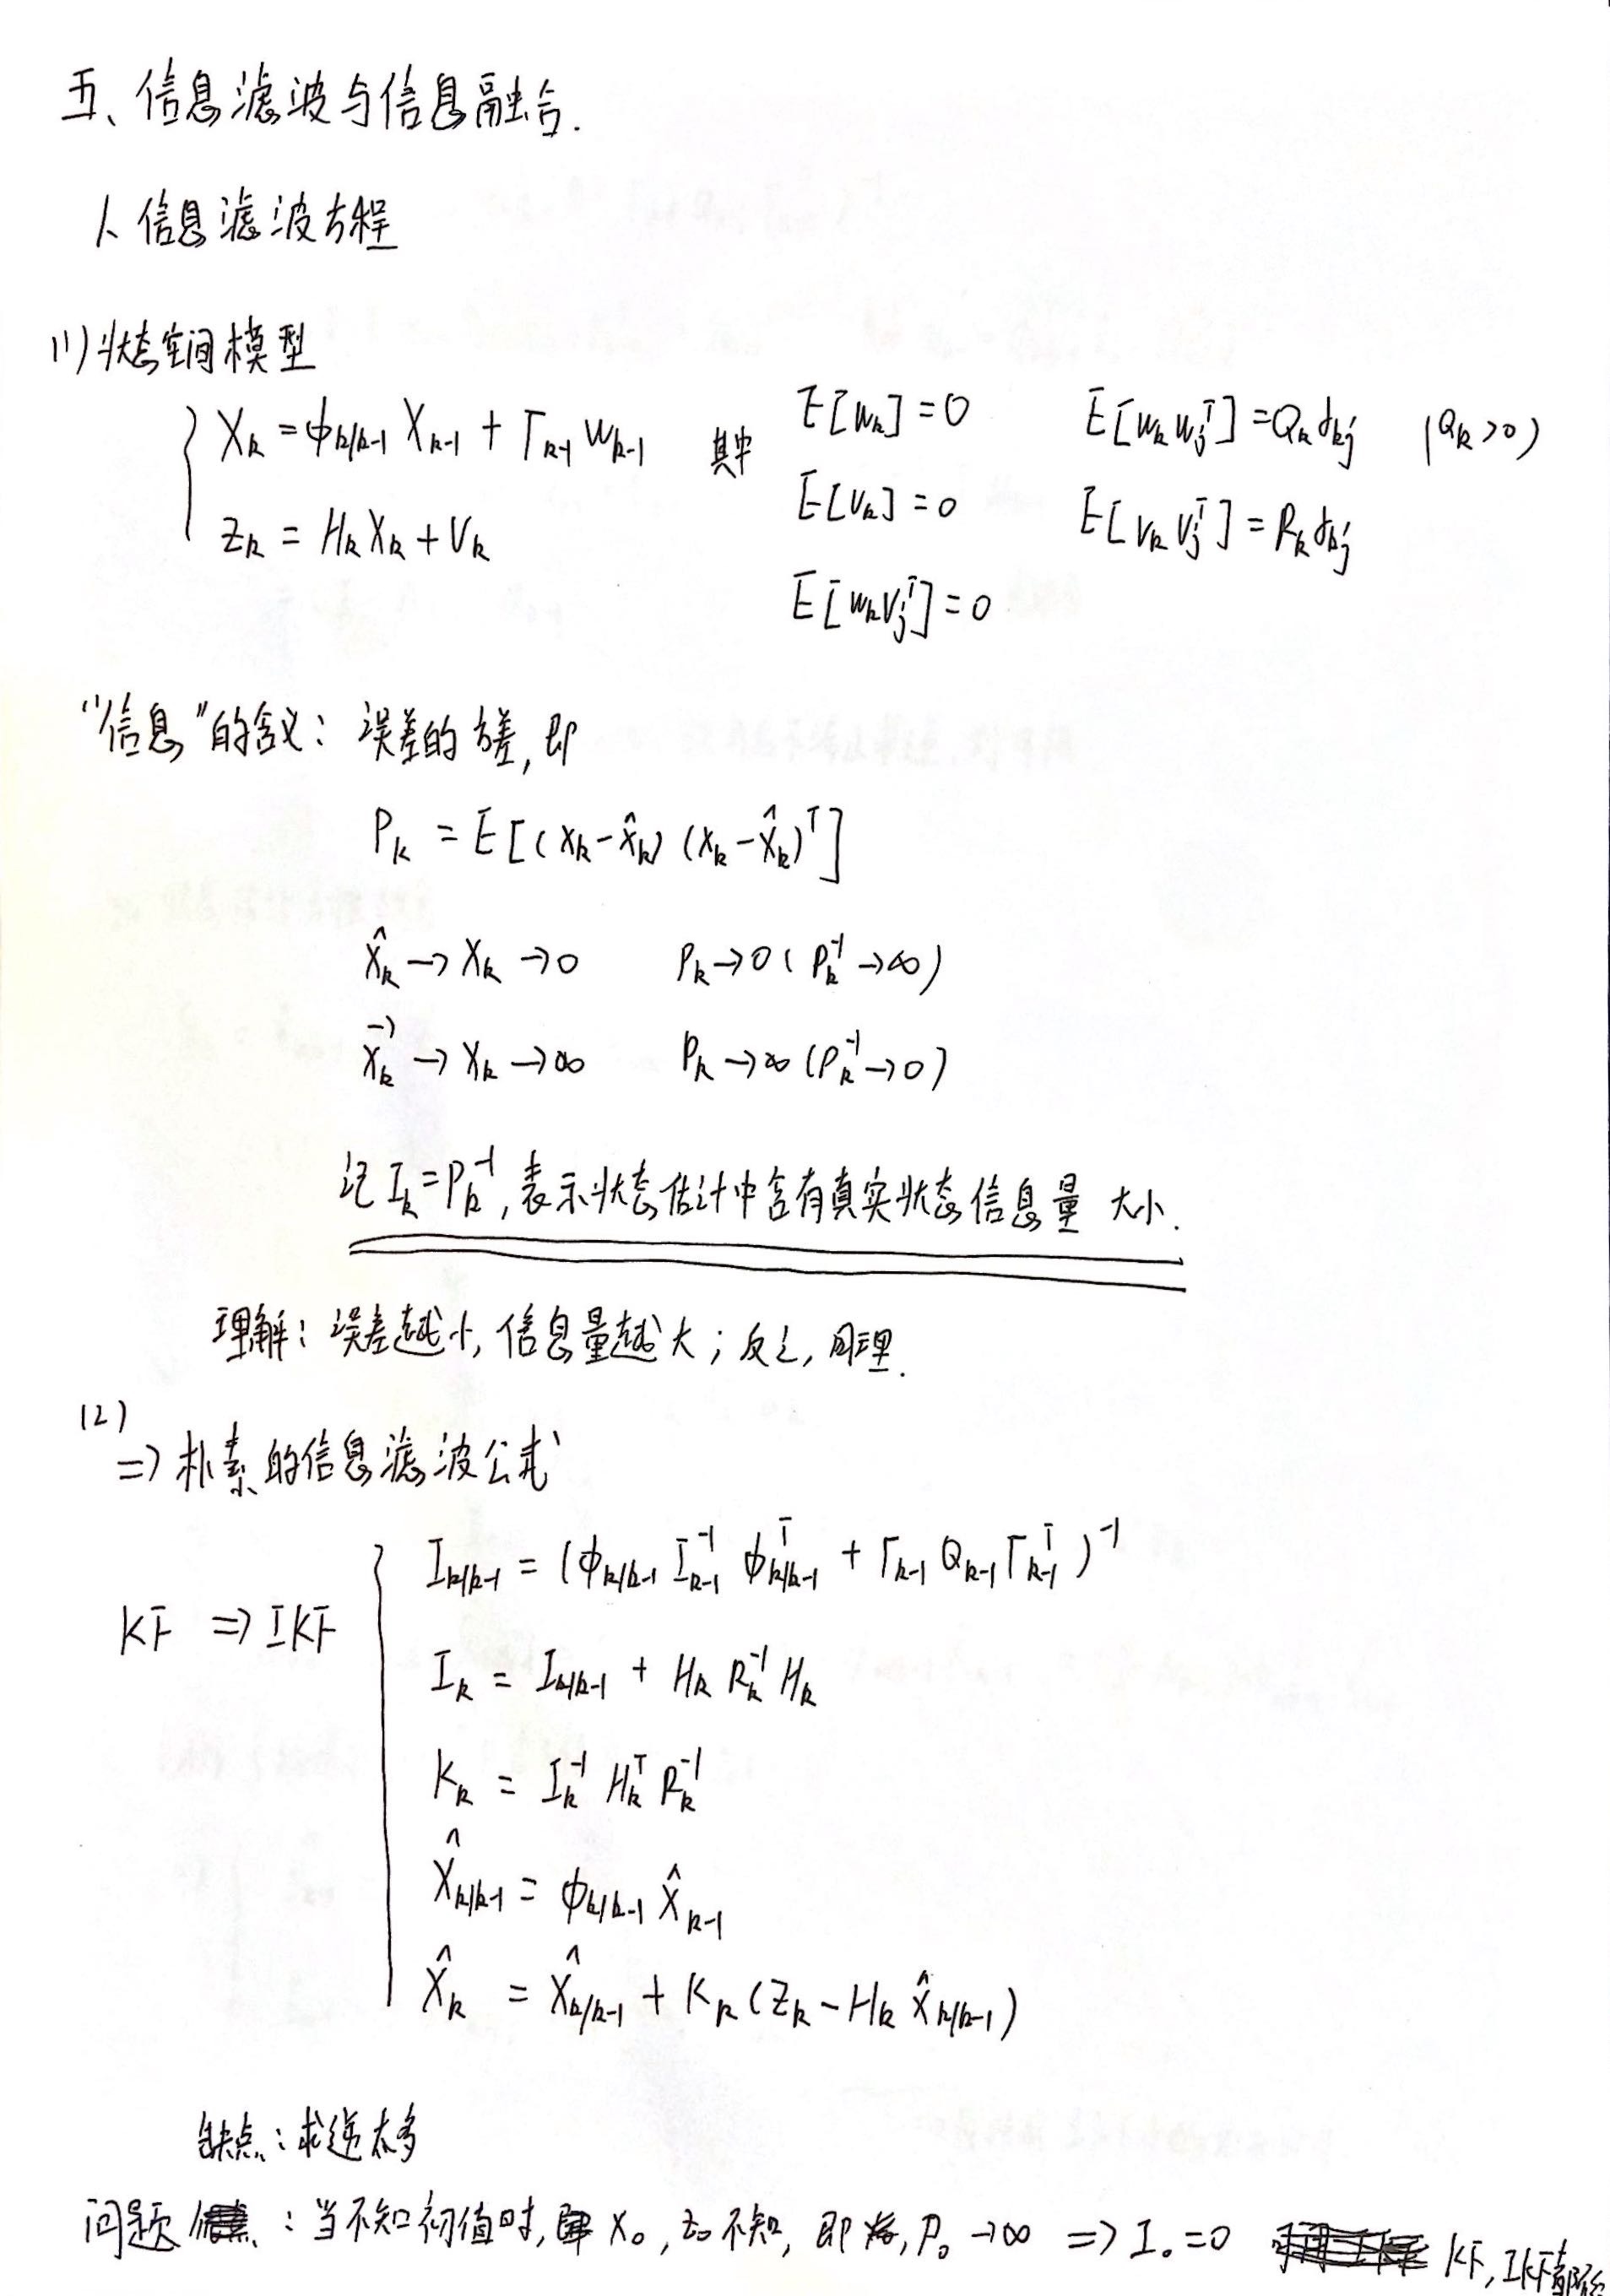 五、信息滤波与信息融合.
1、信息滤波方程
(1)状态空间模型
X_k = φ_{k/k-1} X_{k-1} + Γ_{k-1} W_{k-1} 其中 E[W_k]=0 E[W_k W_j^T]=Q_k δ_{kj} (Q_k>0)
Z_k = H_k X_k + V_k E[V_k]=0 E[V_k V_j^T]=R_k δ_{kj}
E[W_k V_j^T]=0
"信息"的含义: 误差的方差, 即
P_k = E[(X_k-X̂_k)(X_k-X̂_k)^T]
X̂_k → X_k → 0 P_k→0 (P_k^{-1}→∞)
X⃗_k → X_k → ∞ P_k→∞ (P_k^{-1}→0)
记 I_k=P_k^{-1}, 表示状态估计中含有真实状态信息量 大小.
理解: 误差越小, 信息量越大; 反之, 同理.
(2)
⇒ 朴素的信息滤波公式
I_{k/k-1} = (φ_{k/k-1} I_{k-1}^{-1} φ_{k/k-1}^T + Γ_{k-1} Q_{k-1} Γ_{k-1}^T)^{-1}
KF ⇒ IKF
I_k = I_{k/k-1} + H_k R_k^{-1} H_k
K_k = I_k^{-1} H_k^T R_k^{-1}
X̂_{k/k-1} = φ_{k/k-1} X̂_{k-1}
X̂_k = X̂_{k/k-1} + K_k (Z_k - H_k X̂_{k/k-1})
缺点: 求逆太多
问题: 当不知初值时, X_0, 不知, 即 P_0 →∞ ⇒ I_0=0 KF, IKF都